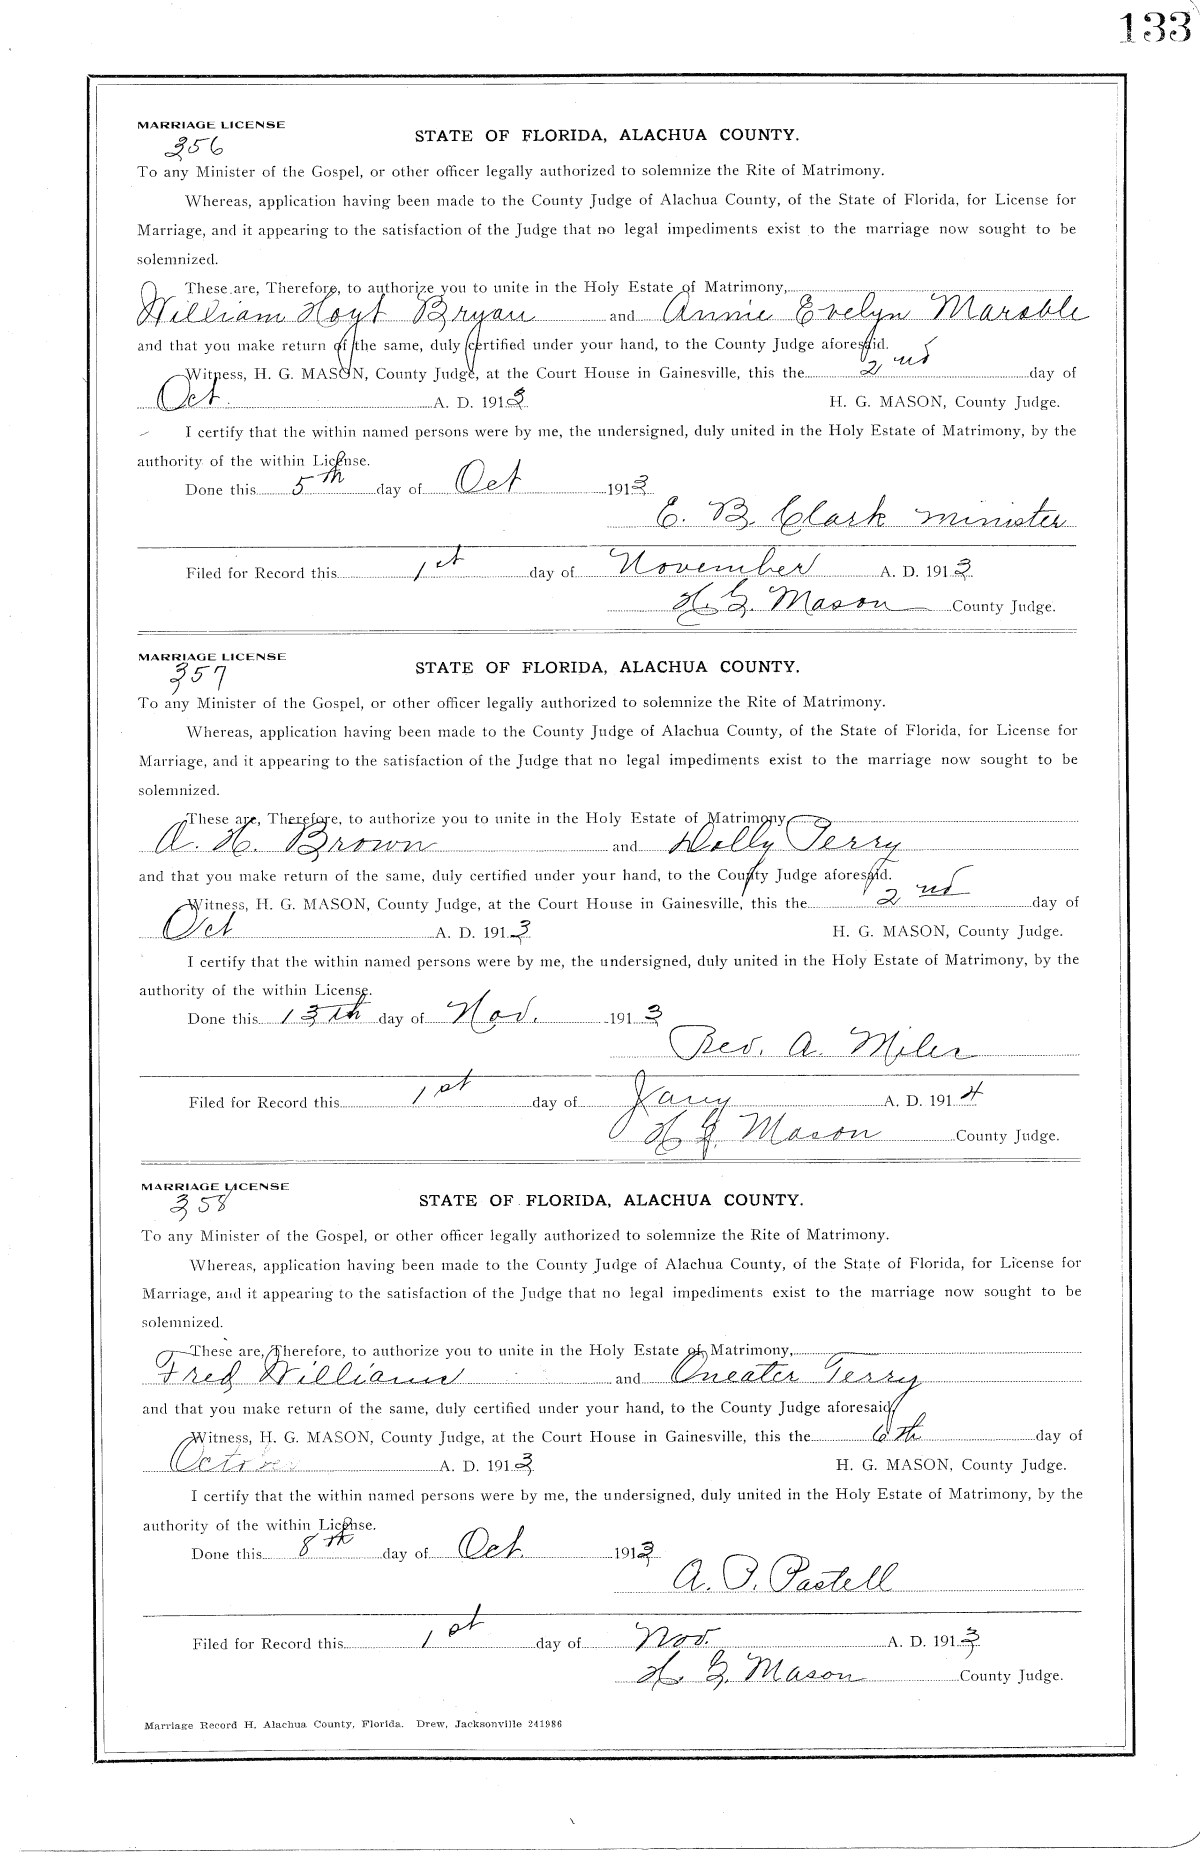 133
MARRIAGE LICENSE
356
STATE OF FLORIDA, ALACHUA COUNTY.
To any Minister of the Gospel, or other officer legally authorized to solemnize the Rite of Matrimony.
Whereas, application having been made to the County Judge of Alachua County, of the State of Florida, for License for
Marriage, and it appearing to the satisfaction of the Judge that no legal impediments exist to the marriage now sought to be
solemnized.
These are, Therefore, to authorize you to unite in the Holy Estate of Matrimony,
William Hoyt Bryan and Annie Evelyn Marable
and that you make return of the same, duly certified under your hand, to the County Judge aforesaid.
Witness, H. G. MASON, County Judge, at the Court House in Gainesville, this the 2nd day of
Oct. A. D. 1913 H. G. MASON, County Judge.
I certify that the within named persons were by me, the undersigned, duly united in the Holy Estate of Matrimony, by the
authority of the within License.
Done this 5th day of Oct 1913
E. B. Clark minister
Filed for Record this 1st day of November A. D. 1913
H. G. Mason County Judge.
MARRIAGE LICENSE
357
STATE OF FLORIDA, ALACHUA COUNTY.
To any Minister of the Gospel, or other officer legally authorized to solemnize the Rite of Matrimony.
Whereas, application having been made to the County Judge of Alachua County, of the State of Florida, for License for
Marriage, and it appearing to the satisfaction of the Judge that no legal impediments exist to the marriage now sought to be
solemnized.
These are, Therefore, to authorize you to unite in the Holy Estate of Matrimony
A. H. Brown and Dolly Perry
and that you make return of the same, duly certified under your hand, to the County Judge aforesaid.
Witness, H. G. MASON, County Judge, at the Court House in Gainesville, this the 2nd day of
Oct A. D. 1913 H. G. MASON, County Judge.
I certify that the within named persons were by me, the undersigned, duly united in the Holy Estate of Matrimony, by the
authority of the within License.
Done this 13th day of Nov. 1913
Rev. A. Miles
Filed for Record this 1st day of Jany A. D. 1914
H G. Mason County Judge.
MARRIAGE LICENSE
358
STATE OF FLORIDA, ALACHUA COUNTY.
To any Minister of the Gospel, or other officer legally authorized to solemnize the Rite of Matrimony.
Whereas, application having been made to the County Judge of Alachua County, of the State of Florida, for License for
Marriage, and it appearing to the satisfaction of the Judge that no legal impediments exist to the marriage now sought to be
solemnized.
These are, Therefore, to authorize you to unite in the Holy Estate of Matrimony,
Fred Williams and Oneater Terry
and that you make return of the same, duly certified under your hand, to the County Judge aforesaid,
Witness, H. G. MASON, County Judge, at the Court House in Gainesville, this the 6th day of
October A. D. 1913 H. G. MASON, County Judge.
I certify that the within named persons were by me, the undersigned, duly united in the Holy Estate of Matrimony, by the
authority of the within License.
Done this 8th day of Oct. 1913
A. P. Pastell
Filed for Record this 1st day of Nov. A. D. 1913
H. G. Mason County Judge.
Marriage Record H, Alachua County, Florida. Drew, Jacksonville 241986